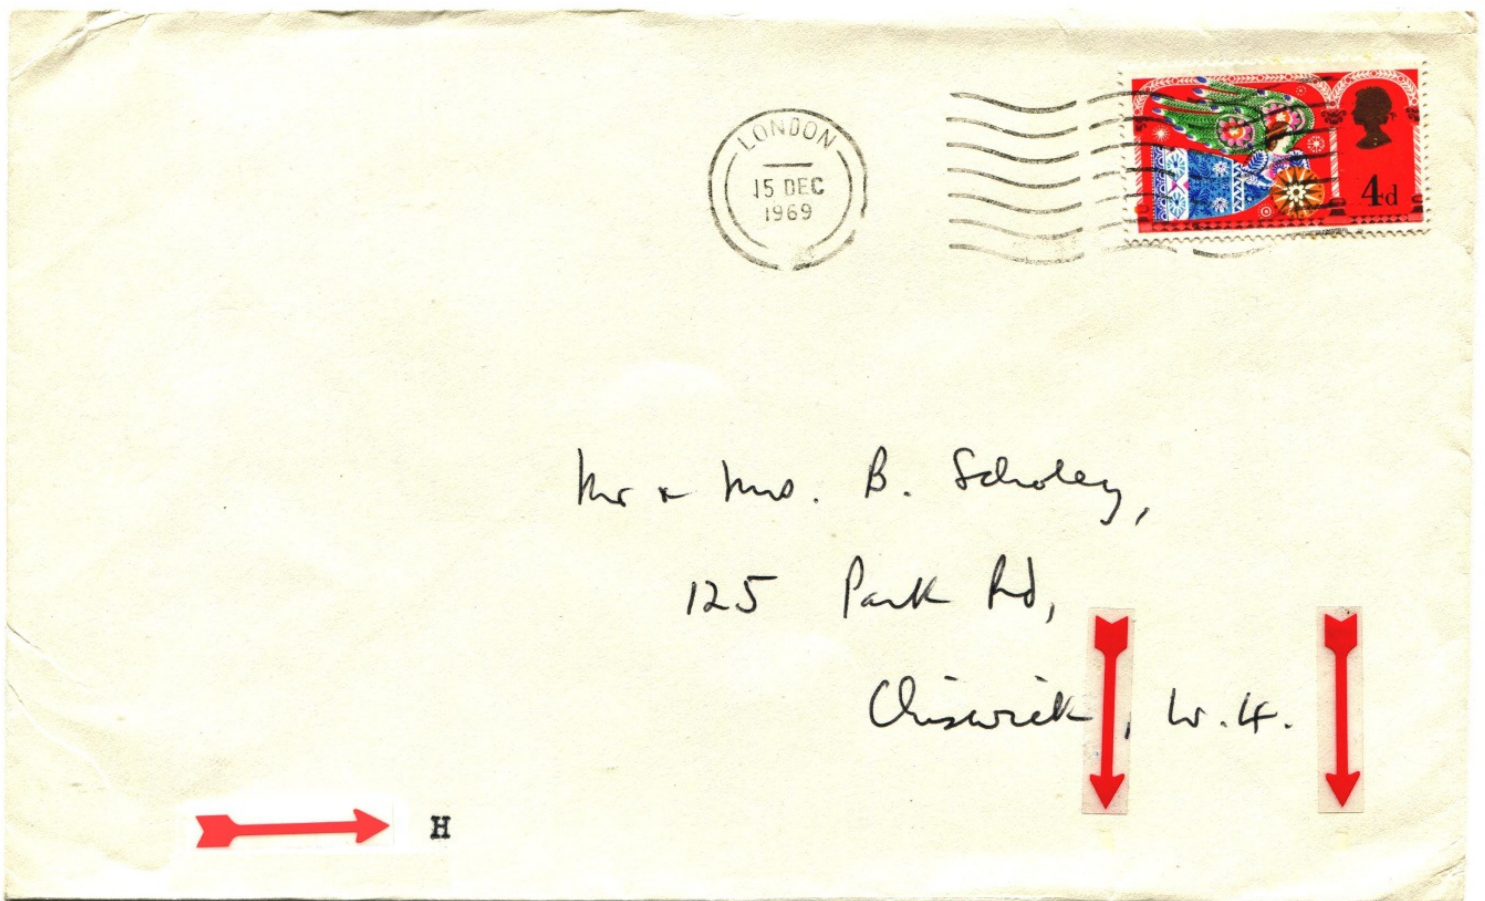 LONDON
15 DEC
1969
4d
Mr & Mrs. B. Scholey,
125 Park Rd,
Chiswick, W.4.
H